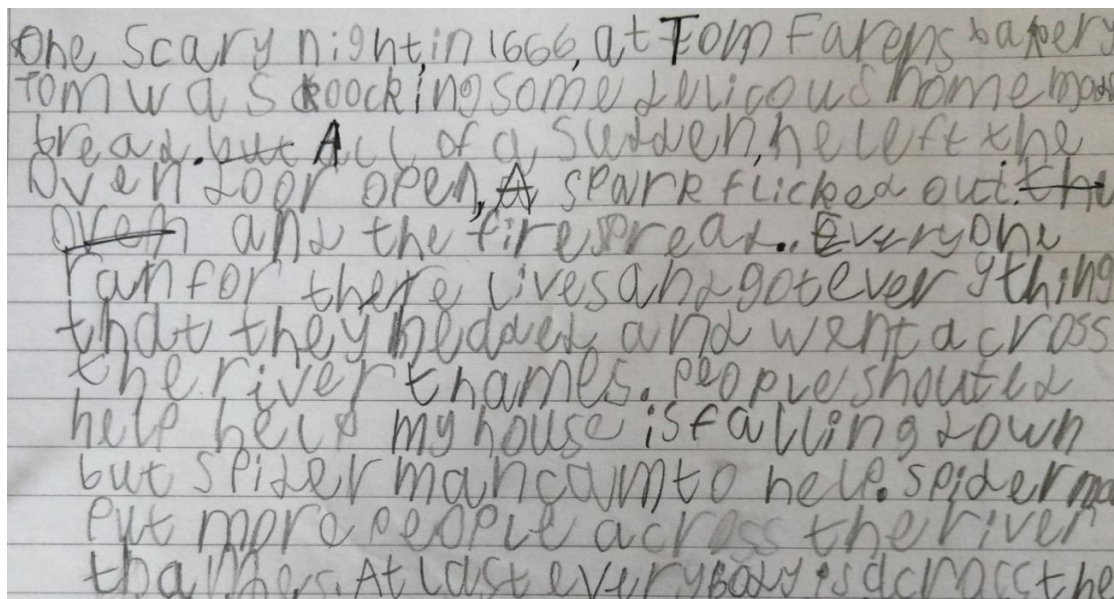 One Scary night, in 1666, at Tom Farens bakery
Tom was coocking some delicous home made
bread. but All of a sudden, he left the
oven door open, A spark flicked out. the
oven and the fire spread.. Everyone
ran for there lives and got everything
that they hedded and went across
the river thames. People shouted
help help my house is falling down
but spider man cam to help. spider ma
put more people across the river
thames. At last everybody is across the